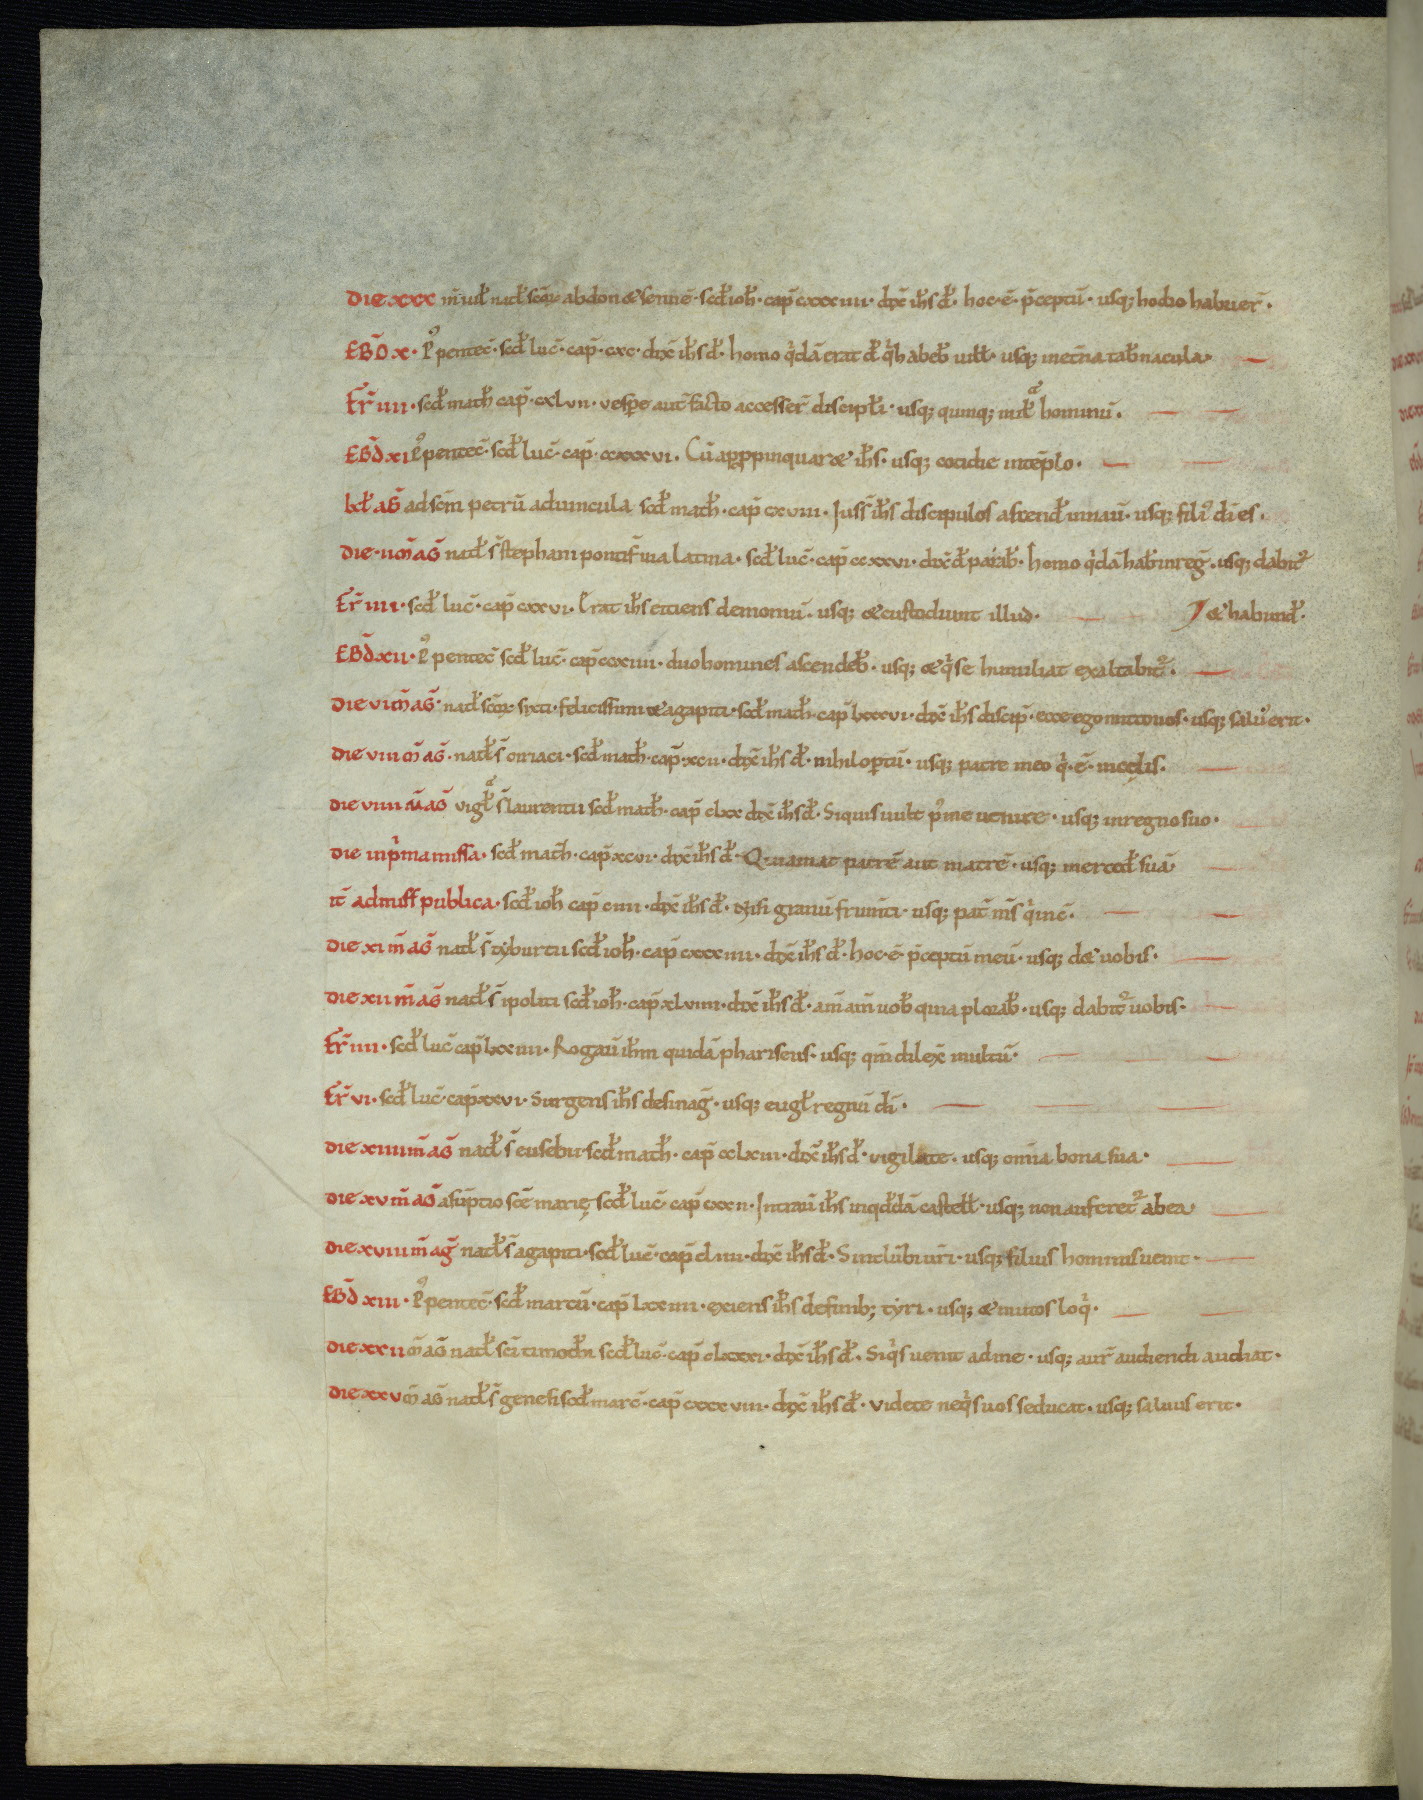 Die xxx m̄ iul̄ nat̄ scōr abdon & sennē· scd̄ ioh̄· cap̄ cxxxiiii· dix̄ ih̄s d̄· hoc· ē· p̄ceptū· usq; hodio habuer̄·
EBD̄ x· P̉ pentec̄· scd̄ luc̄· cap̄· cxc· dix̄ ih̄s d̄· homo q̇dā erat d̄ q̇ habeb̄ uill̄· usq; inet̄na tab̄nacula·
Fr̄ iiii· scd̄ math̄ cap̄· cxlvii· vesp̄e aut̄ facto accesser̄ discipl̄i· usq; quinq; mil̄a hominū·
EBD̄ xi P̉ pentec̄· scd̄ luc̄· cap̄· ccxxxvi· Cū app̄pinquar& ih̄s· usq; cotidie intēplo·
kl̄ aḡ ad sc̄m petrū aduincula scd̄ math̄· cap̄ cxviii· Juss̄ ih̄s discipulos ascend̄ innauī· usq; fili᷒ dī es·
Die· iim̄ aḡ nat̄ s̄ stephani pontif̄ uia latina· scd̄ luc̄· cap̄ ccxxvi· dix̄ d̄ parab̄· homo q̇dā hab̄ inreḡ· usq; dabit᷑
Fr̄ iiii· scd̄ luc̄· cap̄ cxxvi· Erat ih̄s eiciens demoniū· usq; & custodiunt illud· & habund̄·
EBD̄ xii· P̉ pentec̄ scd̄ luc̄· cap̄ ccxiiii· duo homines ascendeb̄· usq; & q̇ se humiliat exaltabit᷑·
Die vi m̄ aḡ· nat̄ scōr syxti· felicissimi & agapiti· scd̄ math̄· cap̄ lxxxvi· dix̄ ih̄s discip̄· ecce ego mitto uos· usq; salu᷒ erit·
Die viii m̄ aḡ· nat̄ s̄ ciriaci· scd̄ math̄· cap̄· xcii· dix̄ ih̄s d̄· nihil op̄tū· usq; patre meo q̇· ē· incęlis·
Die viiii m̄ aḡ vigl̄a s̄ laurentii scd̄ math̄· cap̄ clxx dix̄ ih̄s d̄· Siquis uult p᷒ me uenire· usq; inregno suo·
Die inp̄ma missa· scd̄ math̄· cap̄ xcvi· dix̄ ih̄s d̄· Qui amat patrē aut matrē· usq; merced̄ suā·
It̄ admiss̄ publica· scd̄ ioh̄ cap̄ ciiii· dix̄ ih̄s d̄· Nisi granū frum̄ti· usq; pat̄ m̄s q̇ inc̄·
Die xi m̄ aḡ nat̄ s̄ tyburtii scd̄ ioh̄· cap̄ cxxxiiii· dix̄ ih̄s d̄· hoc· ē· p̄ceptū meū· usq; d& uobis·
Die xii m̄ aḡ nat̄ s̄ ipoliti scd̄ ioh̄· cap̄ xlviiii· dix̄ ih̄s d̄· am̄ am̄ uob̄ quia plorab̄· usq; dabit᷑ uobis·
Fr̄ iiii· scd̄ luc̄ cap̄ lxxiiii· Rogau̅ ih̄m quidā phariseus· usq; qm̄ dilex̄ multū·
Fr̄ vi· scd̄ luc̄· cap̄ xxvi· Surgens ih̄s desinaḡ· usq; eugl̄ regnū dī·
Die xiiii m̄ aḡ nat̄ s̄ eusebii· scd̄ math̄· cap̄ cclxiii· dix̄ ih̄s d̄· vigilate· usq; omīa bona sua·
Die xv m̄ aḡ asūptio scē marię scd̄ luc̄· cap̄ cxxii· Intrau̅ ih̄s inqd̄dā castell̄· usq; non auferet᷑ ab ea·
Die xviii m̄ aḡ nat̄ s̄ agapiti· scd̄ luc̄· cap̄ cliiii· dix̄ ih̄s d̄· Sint lūbi ur̄i· usq; filius hominis uenit·
EBD̄ xiii· P̉ pentec̄· scd̄ marcū· cap̄ lxxiiii· exiens ih̄s definib; tyri· usq; & mutos loq̇·
Die xxii m̄ aḡ nat̄ scī timoth̄i scd̄ luc̄· cap̄ clxxxi· dix̄ ih̄s d̄· Siq̇s uenit ad me· usq; aur̄ audiendi audiat·
Die xxv m̄ aḡ nat̄ s̄ genesi scd̄ marc̄· cap̄ cxxxviii· dix̄ ih̄s d̄· Videte neq̇s uos seducat· usq; saluus erit·